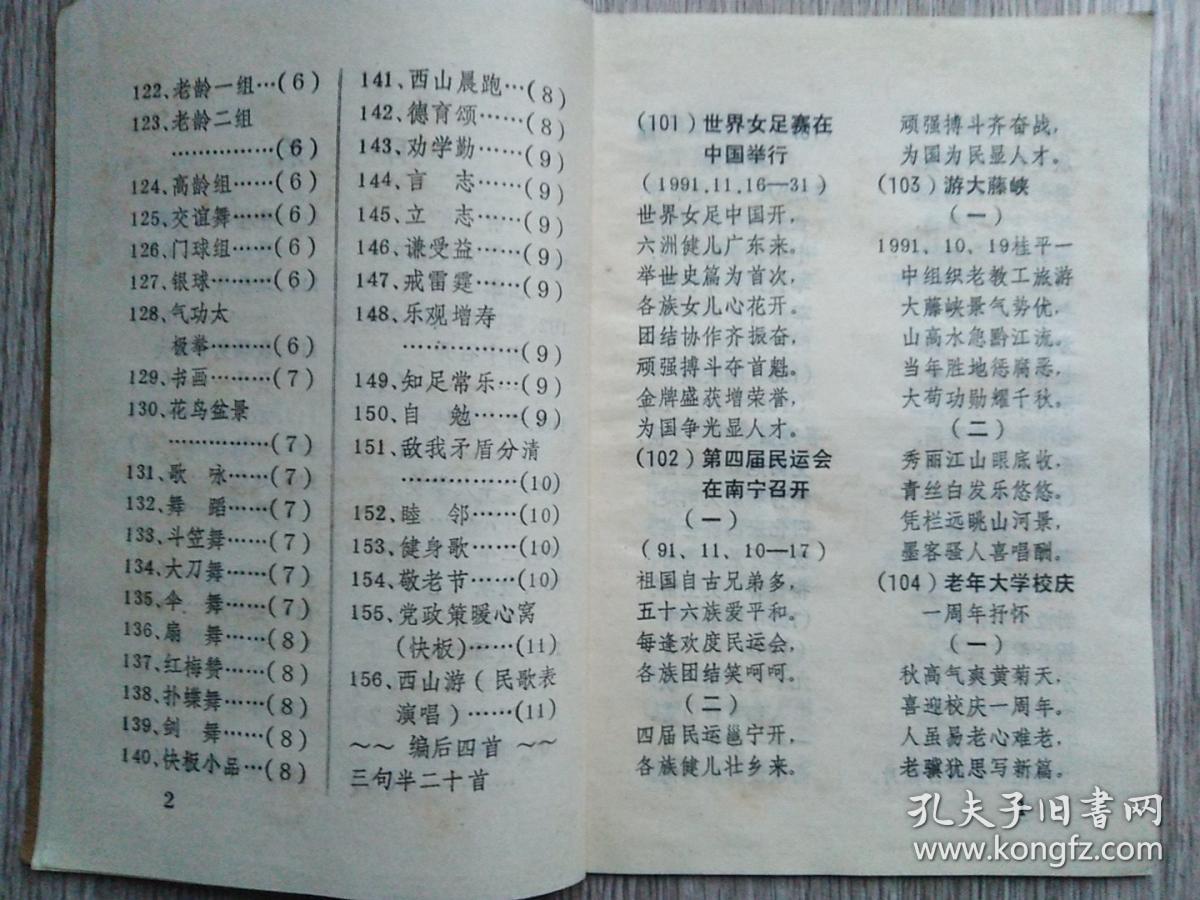 122、老龄一组…(6)
123、老龄二组
……………(6)
124、高龄组……(6)
125、交谊舞……(6)
126、门球组……(6)
127、银球………(6)
128、气功太
极拳………(6)
129、书画………(7)
130、花鸟盆景
……………(7)
131、歌　咏……(7)
132、舞　蹈……(7)
133、斗笠舞……(7)
134、大刀舞……(7)
135、伞　舞……(7)
136、扇　舞……(8)
137、红梅赞……(8)
138、扑蝶舞……(8)
139、剑　舞……(8)
140、快板小品…(8)
2
141、西山晨跑…(8)
142、德育颂……(8)
143、劝学勤……(9)
144、言　志……(9)
145、立　志……(9)
146、谦受益……(9)
147、戒雷霆……(9)
148、乐观增寿
……………(9)
149、知足常乐…(9)
150、自　勉……(9)
151、敌我矛盾分清
……………(10)
152、睦　邻……(10)
153、健身歌……(10)
154、敬老节……(10)
155、党政策暖心窝
(快板)……(11)
156、西山游（民歌表
演唱）……(11)
～～ 编后四首 ～～
三句半二十首
(101)世界女足赛在
中国举行
(1991.11.16—31)
世界女足中国开，
六洲健儿广东来。
举世史篇为首次，
各族女儿心花开。
团结协作齐振奋，
顽强搏斗夺首魁。
金牌盛获增荣誉，
为国争光显人才。
(102)第四届民运会
在南宁召开
(一)
(91、11、10—17)
祖国自古兄弟多，
五十六族爱平和。
每逢欢度民运会，
各族团结笑呵呵。
(二)
四届民运邕宁开，
各族健儿壮乡来。
顽强搏斗齐奋战，
为国为民显人才。
(103)游大藤峡
(一)
1991、10、19桂平一
中组织老教工旅游
大藤峡景气势优，
山高水急黔江流。
当年胜地惩腐恶，
大苟功勋耀千秋。
(二)
秀丽江山眼底收，
青丝白发乐悠悠。
凭栏远眺山河景，
墨客骚人喜唱酬。
(104)老年大学校庆
一周年抒怀
(一)
秋高气爽黄菊天，
喜迎校庆一周年。
人虽易老心难老，
老骥犹思写新篇。
孔夫子旧书网
www.kongfz.com